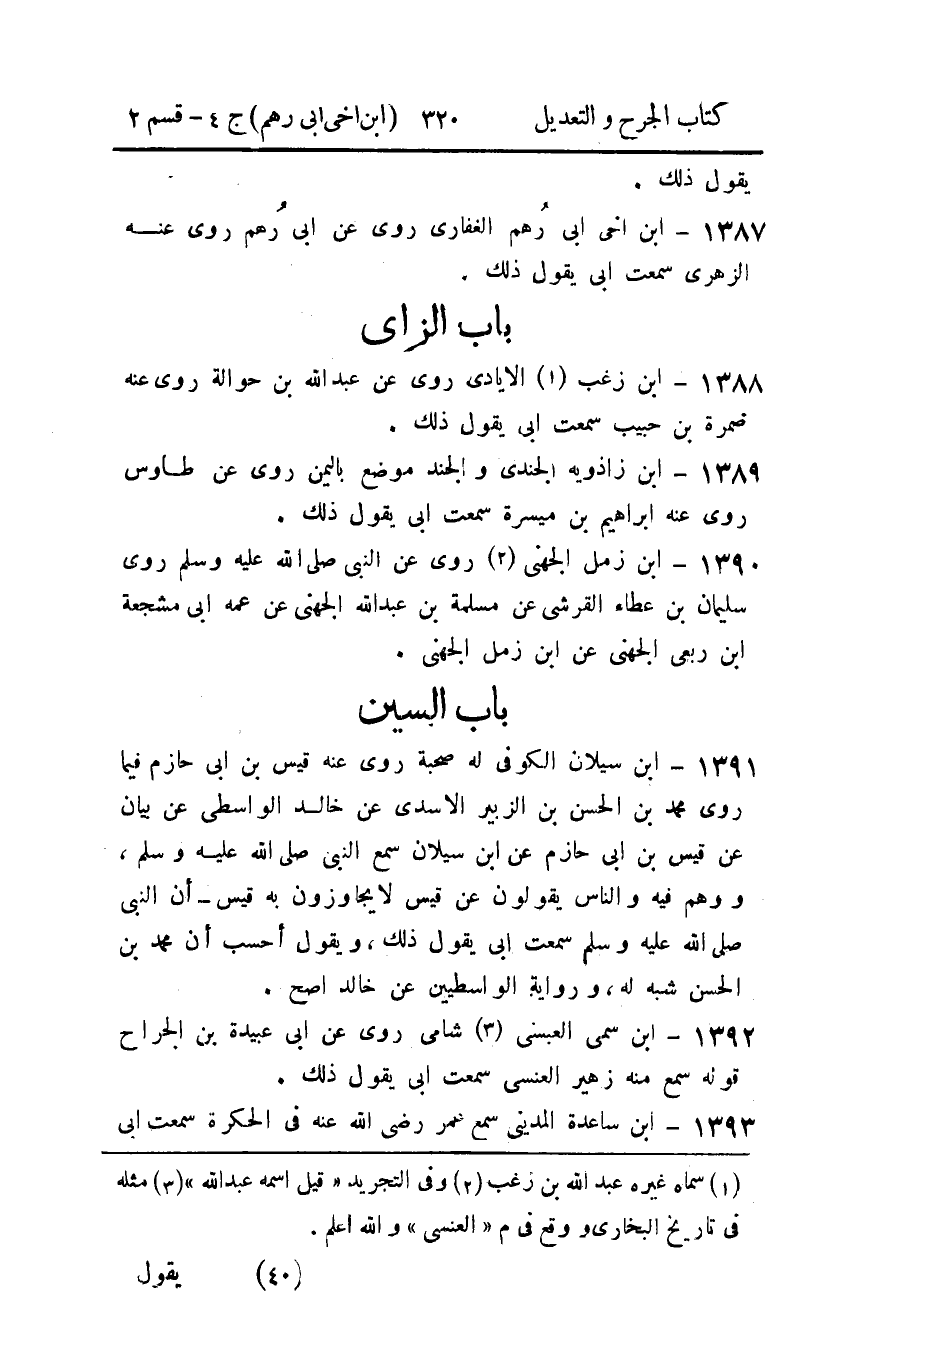 كتاب الجرح و التعديل ٣٢٠ (ابن اخى ابى رهم) ج ٤ - قسم ٢
يقول ذلك .
١٣٨٧ - ابن اخى ابى رُهم الغفارى روى عن ابى رُهم روى عنـــه
الزهرى سمعت ابى يقول ذلك .
باب الزاى
١٣٨٨ - ابن زغب (١) الايادى روى عن عبد الله بن حوالة روى عنه
ضمرة بن حبيب سمعت ابى يقول ذلك .
١٣٨٩ - ابن زاذويه الجندى و الجند موضع باليمن روى عن طـاوس
روى عنه ابراهيم بن ميسرة سمعت ابى يقول ذلك .
١٣٩٠ - ابن زمل الجهنى (٢) روى عن النبى صلى الله عليه و سلم روى
سليمان بن عطاء القرشى عن مسلمة بن عبد الله الجهنى عن عمه ابى مشجعة
ابن ربعى الجهنى عن ابن زمل الجهنى .
باب السين
١٣٩١ - ابن سيلان الكوفى له صحبة روى عنه قيس بن ابى حازم فيما
روى محمد بن الحسن بن الزبير الاسدى عن خالـد الواسطى عن بيان
عن قيس بن ابى حازم عن ابن سيلان سمع النبى صلى الله عليـه و سلم ،
و وهم فيه و الناس يقولون عن قيس لا يجاوزون به قيس ـ أن النبى
صلى الله عليه و سلم سمعت ابى يقول ذلك ، و يقول أحسب أن محمد بن
الحسن شبه له ، و رواية الواسطيين عن خالد اصح .
١٣٩٢ - ابن سمى العبسى (٣) شامى روى عن ابى عبيدة بن الجراح
قوله سمع منه زهير العنسى سمعت ابى يقول ذلك .
١٣٩٣ - ابن ساعدة المدينى سمع عمر رضى الله عنه فى الحكرة سمعت ابى
(١) سماه غيره عبد الله بن زغب (٢) وفى التجريد « قيل اسمه عبدالله » (٣) مثله
فى تاريخ البخارى و وقع فى م « العنسى » و الله اعلم .
(٤٠) يقول